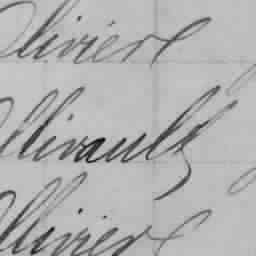 Olivier
Ollivault
Ollivier